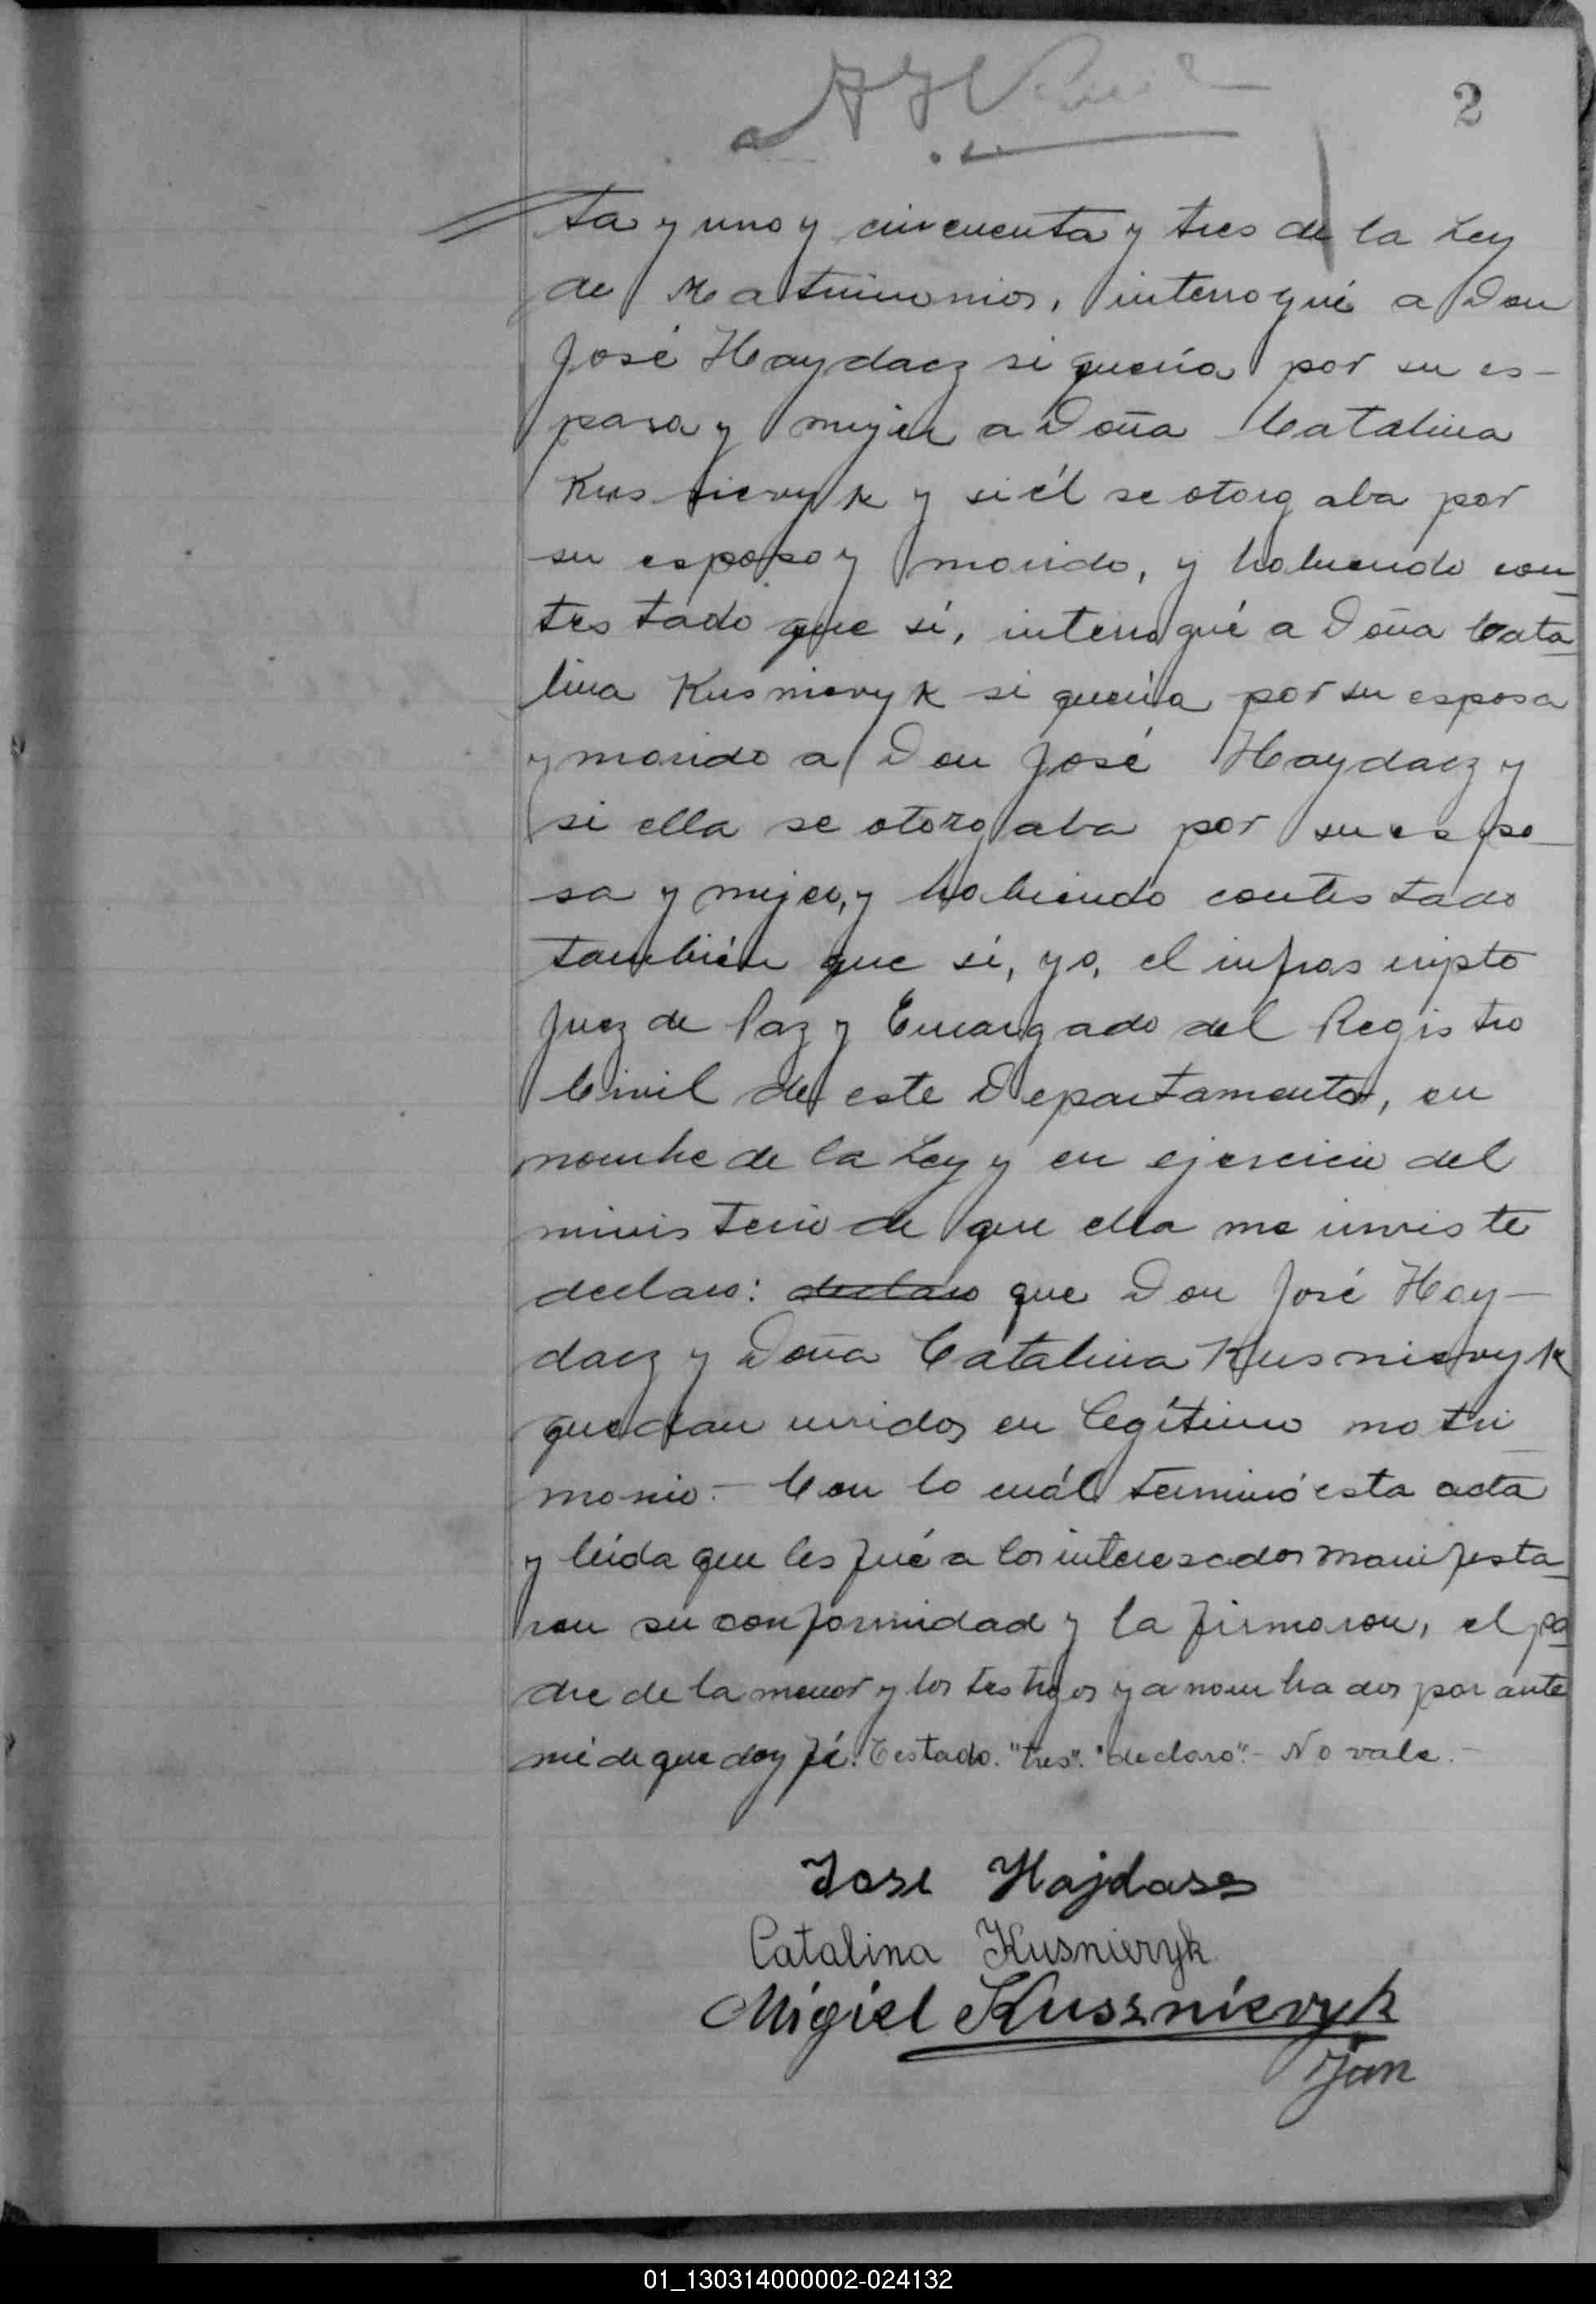 2
ta y uno y cincuenta y tres de la Ley
de Matrimonios, interrogué a Don
José Haydacz si quería por su es-
posa y mujer a Doña Catalina
Kusnieryk y si él se otorgaba por
su esposo y marido, y habiendo con
testado que sí, interrogué a Doña Cata
lina Kusnieryk si quería por su esposo
y marido a Don José Haydacz y
si ella se otorgaba por su espo-
sa y mujer, y habiendo contestado
también que sí, yo, el infrascripto
Juez de Paz y Encargado del Registro
Civil de este Departamento, en
nombre de la Ley y en ejercicio del
ministerio de que ella me inviste
declaro: declaro que Don José Hay-
dacz y Doña Catalina Kusnieryk
quedan unidos en legítimo matri
monio.- Con lo cuál terminó esta acta
y leída que les fué a los interesados manifesta
ron su conformidad y la firmaron, el pa
dre de la menor y los testigos ya nombrados por ante
mí de que doy fé. Testado. "tres". "declaro".- No vale.-
José Hajdasz
Catalina Kusnieryk
Migiel Kusznieryk
Jan
01_130314000002-024132